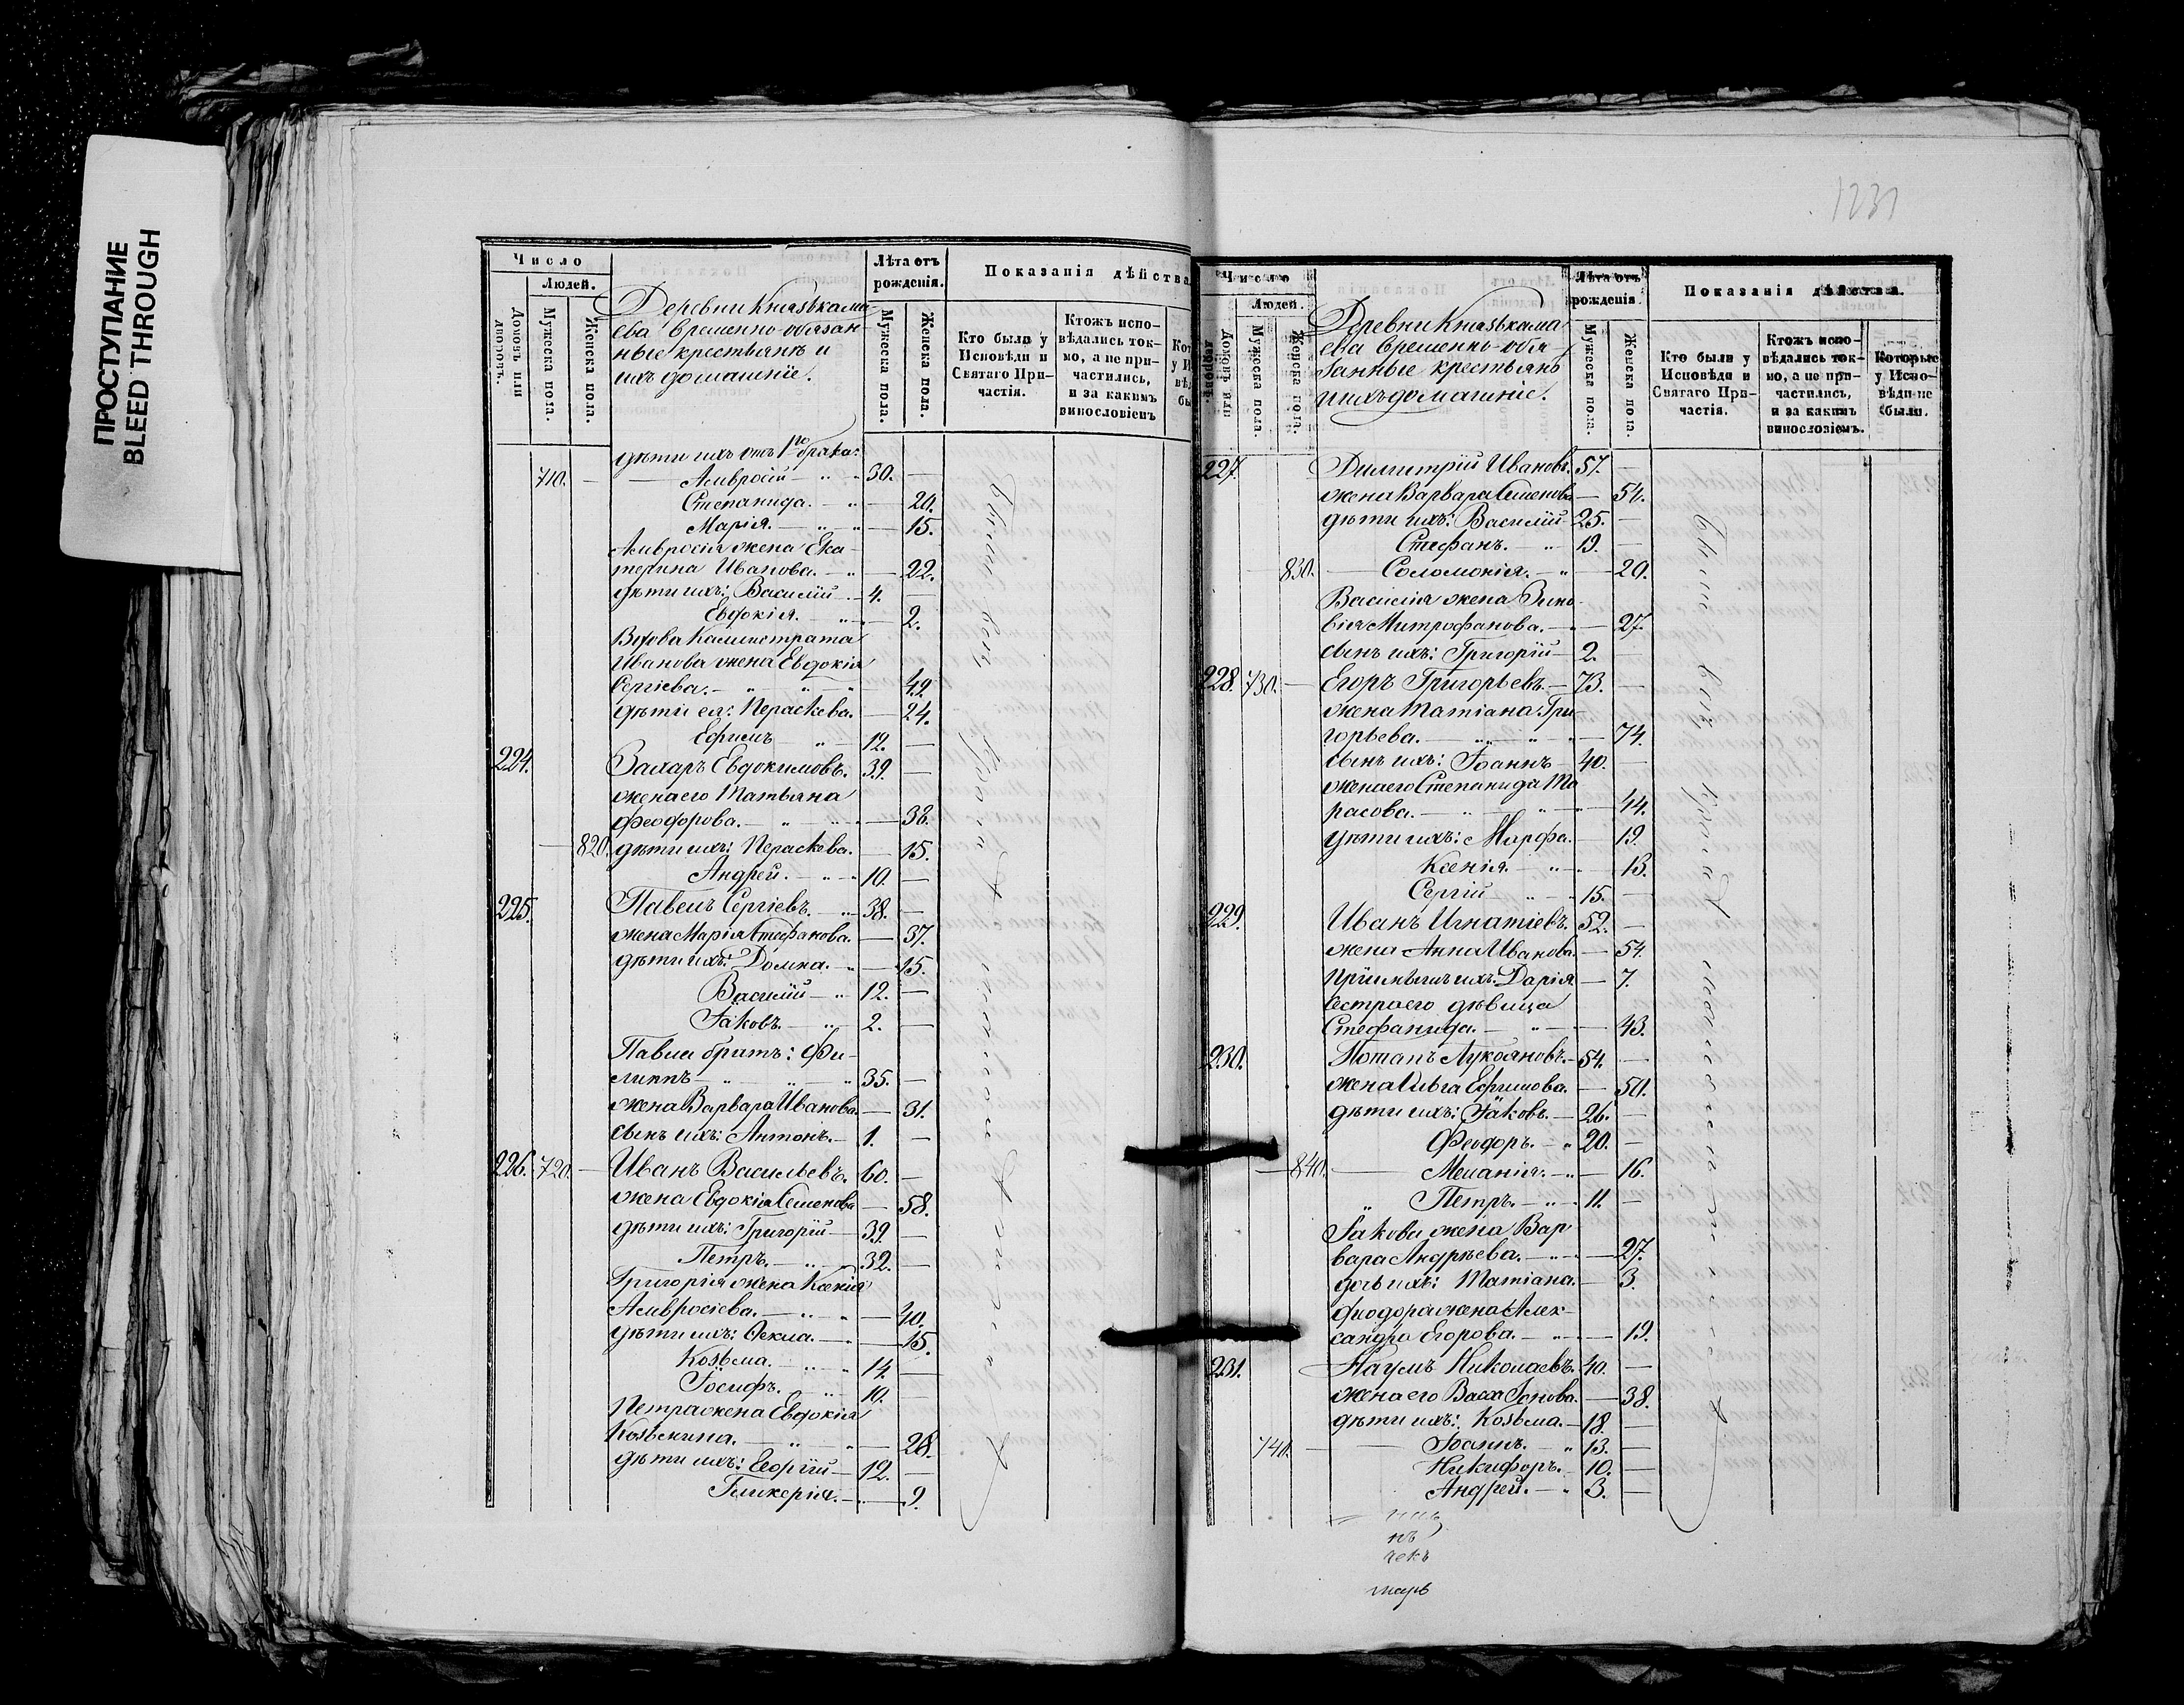 ПРОСТУПАНИЕ
BLEED THROUGH
Число
Людей.
Домовъ или дворовъ.
Мужеска пола.
Женска пола.
Деревни Князькама-
ева временно-обязан-
ные крестьянъ и
ихъ домашніе.
Лѣта отъ рожденія.
Мужеска пола.
Женска пола.
Показанія дѣйства
Кто были у Исповѣди и Святаго Причастія.
Ктожъ исповѣдались токмо, а не причастились, и за какимъ винословіемъ
дѣти ихъ отъ 1го брака:
710. — Амвросій — 30. —
Степанида. — 20.
Марія. — 15.
Амвросія жена Ека-
терина Иванова. — 22.
дѣти ихъ: Василій — 4. —
Евдокія. — 2.
Вдова Каллистрата
Иванова жена Евдокія
Сергіева. — 49.
дѣти ея: Параскева. — 24.
Ефримъ 12. —
224. Захаръ Евдокимовъ. 39. —
жена его Татьяна
Феодорова. — 38.
— 820. дѣти ихъ: Параскева. — 15.
Андрей. — 10. —
225. Павелъ Сергіевъ. — 38. —
жена Марія Стефанова. — 37.
дѣти ихъ: Домна. — 15.
Василій — 12. —
Іаковъ. — 2. —
Павла братъ: Фи-
липпъ — 35. —
жена Варвара Иванова. — 31.
сынъ ихъ: Антонъ. — 1. —
226. 720. — Иванъ Васильевъ. 60. —
жена Евдокія Семенова — 58.
дѣти ихъ: Григорій — 39. —
Петръ. — 32. —
Григорія жена Ксенія
Амвросіева. — 40.
дѣти ихъ: Фекла. — 15.
Козьма. — 14. —
Іосифъ. 10. —
Петра жена Евдокія
Козьмина. — 28.
дѣти ихъ: Георгій — 12. —
Гликерія. — 9.
1231
Число
Людей.
Домовъ или дворовъ.
Мужеска пола.
Женска пола.
Деревни Князькама
ева временно-обя-
занные крестьянъ
и ихъ домашніе.
Лѣта отъ рожденія.
Мужеска пола.
Женска пола.
Показанія дѣйства.
Кто были у Исповѣди и Святаго Причастія.
Ктожъ исповѣдались токмо, а не причастились, и за какимъ винословіемъ.
Которые у Исповѣди не были.
227. Димитрій Ивановъ. 57. —
жена Варвара Семенова — 54.
дѣти ихъ: Василій — 25. —
Стефанъ. — 19. —
830. — Соломонія. — 20.
Василія жена Зино-
вія Митрофанова. — 27.
сынъ ихъ: Григорій — 2. —
228. 730. — Егоръ Григорьевъ. — 73. —
жена Татіана Гри-
горьева. — 74.
сынъ ихъ: Іоаннъ — 40. —
жена его Степанида Та-
расова. — 44.
дѣти ихъ: Марфа. — 19.
Ксенія. — 13.
Сергій 15. —
229. Иванъ Игнатіевъ. 52. —
жена Анна Иванова. — 54.
пріимышъ ихъ: Дарія — 7.
сестра его дѣвица
Стефанида. — 43.
230. Потапъ Лукояновъ. — 54. —
жена Ольга Ефимова. — 50.
дѣти ихъ: Іаковъ. — 26. —
Феодоръ. — 20. —
— 840. — Меланія. — 16.
Петръ. — 11. —
Іакова жена Вар-
вара Андреева. — 27.
дочь ихъ: Татіана. — 3.
Феодора жена Алек-
сандра Егорова. — 19.
231. Наумъ Николаевъ. 40. —
жена его Васса Іонова. — 38.
дѣти ихъ: Козьма. — 18. —
740. — Іоаннъ. 13. —
Никифоръ. 10. —
Андрей. — 3. —